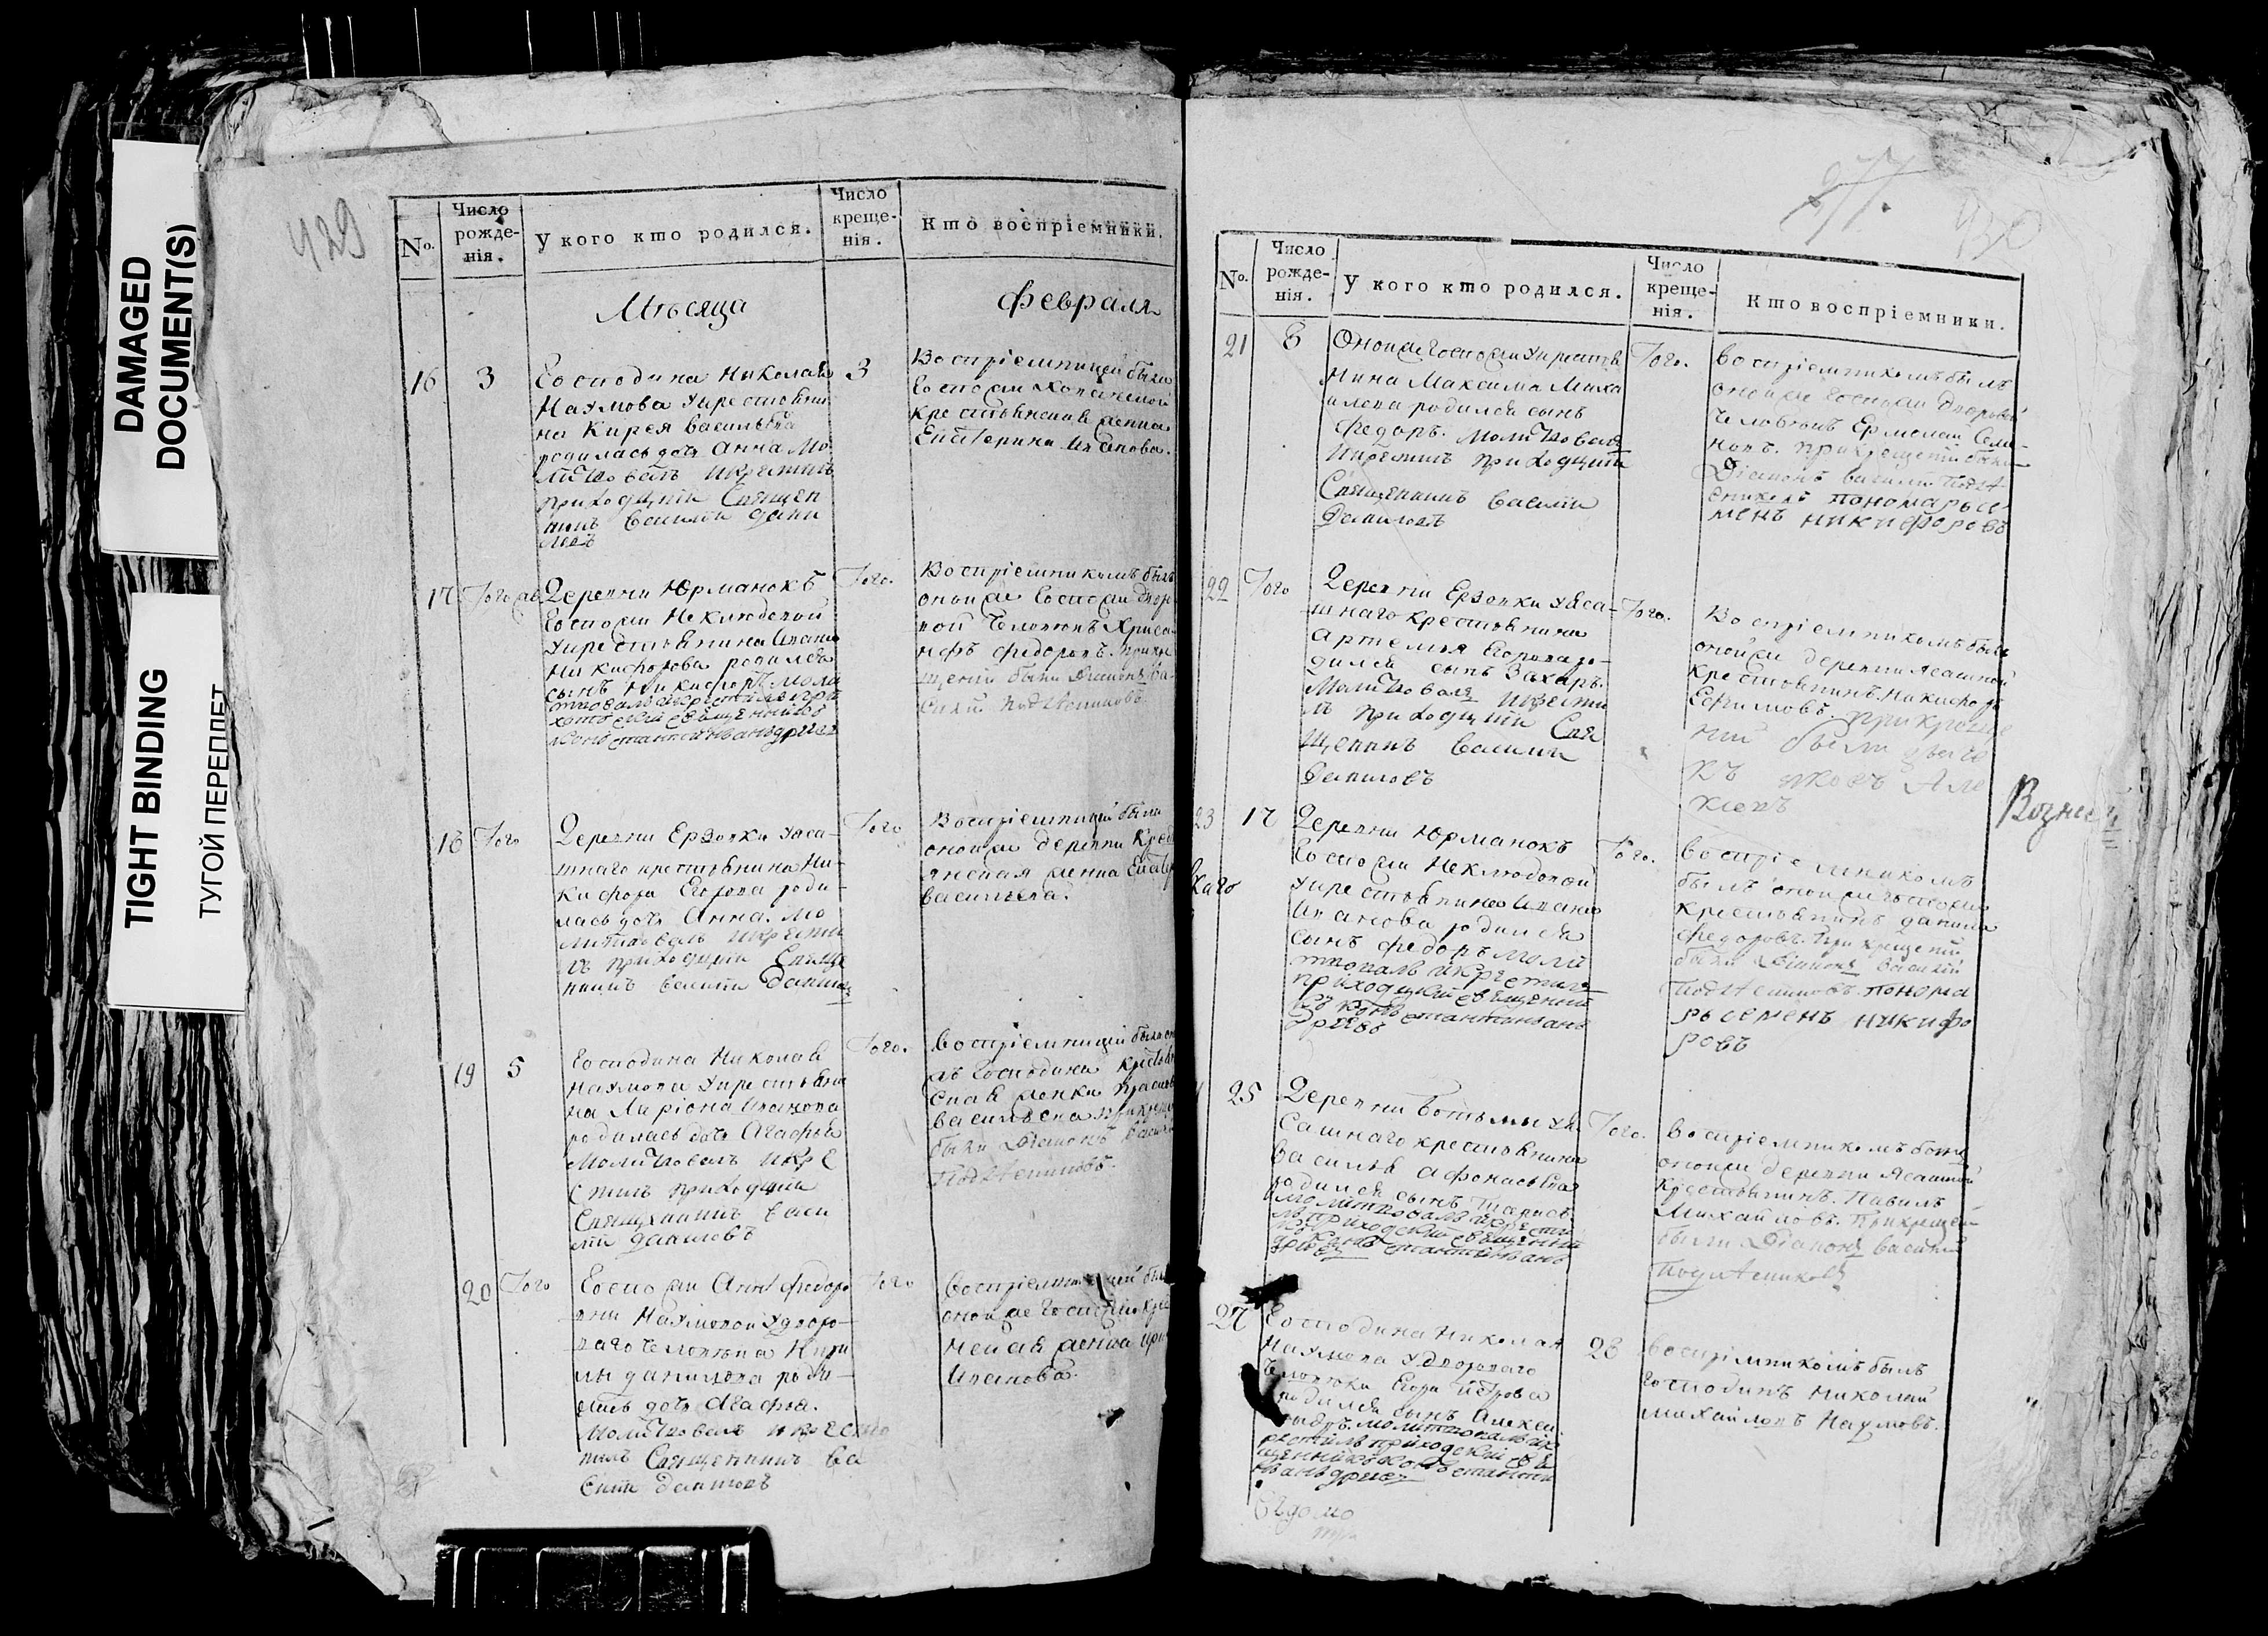 DAMAGED
DOCUMENT(S)
TIGHT BINDING
ТУГОЙ ПЕРЕПЛЕТ
429
No.
Число рожде-нія.
У кого кто родился.
Число креще-нія.
Кто воспріемники.
Мѣсяца
февраля
16
3
Господина Николая
Наумова у крестьяни
на Кирея Васильева
родилась дочь Анна Мо
литвовалъ и крестилъ
приходцкій Священ
никъ Василій Дани
ловъ
3
Воспріемницей была
Госпожи
крестьянская женка
Екатерина Иванова.
17
Того же
Деревни Юрманокъ
Госпожи Неклюдовой
у крестьянина Ивана
Никифорова родился
сынъ Никифоръ моли
твовалъ и крестилъ при
ходской священникъ
Константинъ Андреев
Того.
Воспріемникомъ былъ
оной же Госпожи двор
вой человѣкъ Хриса
нфъ Федоровъ. при кре
щеніи были Діаконъ Ва
силій
18
Того
Деревни Ерзовки у яса-
шнаго крестьянина Ни-
кифора Егорова роди-
лась дочь Анна. мо
литвовалъ и крести
лъ приходцкій Свяще
нникъ Василій Данилов
Того
Воспріемницей была
оной же деревни Крест
янская женка Екатер
Васильева.
19
5
Господина Николая
Наумова у крестьяни
на Ларіона Иванова
родилась дочь Агафья
Молитвовалъ и кре
стилъ приходцкій
Священникъ Васи
лій Даниловъ
Того.
воспріемницей была он
аго Господина крестьян
ская женка
Васильева при крещ
были Діаконъ Васил
20
Того
Госпожи Анны Федоро
вны Наумовой у дворо-
ваго человѣка Кири
лы Данилова роди-
лась дочь Агафья.
Молитвовалъ и крести
лъ Священникъ Ва
силій Даниловъ
Того
Воспріемницей была
оной же Госпожи кре
женка
Иванова.
277.
430
No.
Число рожде-нія.
У кого кто родился.
Число креще-нія.
Кто воспріемники.
21
6
Оной же Госпожи у крестья
нина Максима Миха
илова родился сынъ
Федоръ. молитвовалъ
и крестилъ приходцкій
Священникъ Василій
Даниловъ
Того.
Воспріемникомъ былъ
оной же Госпожи дворовой
человѣкъ Ермолай Семе-
новъ. при крещеніи были
Діаконъ Василій
пономарь се
менъ никифоровъ
22
Того
Деревни Ерзовки у яса-
шнаго крестьянина
Артемья Егорова ро-
дился сынъ Захаръ.
Молитвовалъ и крести
лъ приходцкій Свя
щенникъ Василій
Даниловъ
Того.
Воспріемникомъ былъ
оной же деревни ясашной
крестьянинъ Никифоръ
Ефимовъ. при креще
ніи были дьяче
къ яковъ Але
Вознес
23
17
Деревни Юрманокъ
Госпожи Неклюдовой
у крестьянина Ивана
Иванова родился
сынъ Федоръ моли
твовалъ и крестилъ
приходцкій священни
къ Константинъ Ан
дреевъ
Того.
Воспріемникомъ
былъ оной же госпожи
крестьянинъ Данила
Федоровъ. при крещеніи
были Діаконъ Василій
понома
рь семенъ никифо
ровъ
25
Деревни Ботьмы у я
сашнаго крестьянина
Василья Афонасьева
родился сынъ Тарасъ
молитвовалъ и крести
лъ приходской священни
къ Константинъ Ан
дреев
Того.
воспріемникомъ былъ
оной же деревни ясашной
крестьянинъ Павилъ
Михайловъ. при крещеніи
были Діаконъ Василій
27
Господина Николая
Наумова у двороваго
человѣка Егора Петрова
родился сынъ Алекса
ндръ. молитвовалъ и к
рестилъ приходской свя
щенникъ Константи
нъ Андреев
28
воспріемникомъ былъ
господинъ Николай
Михайловъ Наумовъ.